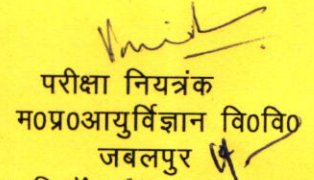 परीक्षा नियत्रंक
म०प्र०आयुर्विज्ञान वि०वि०
जबलपुर